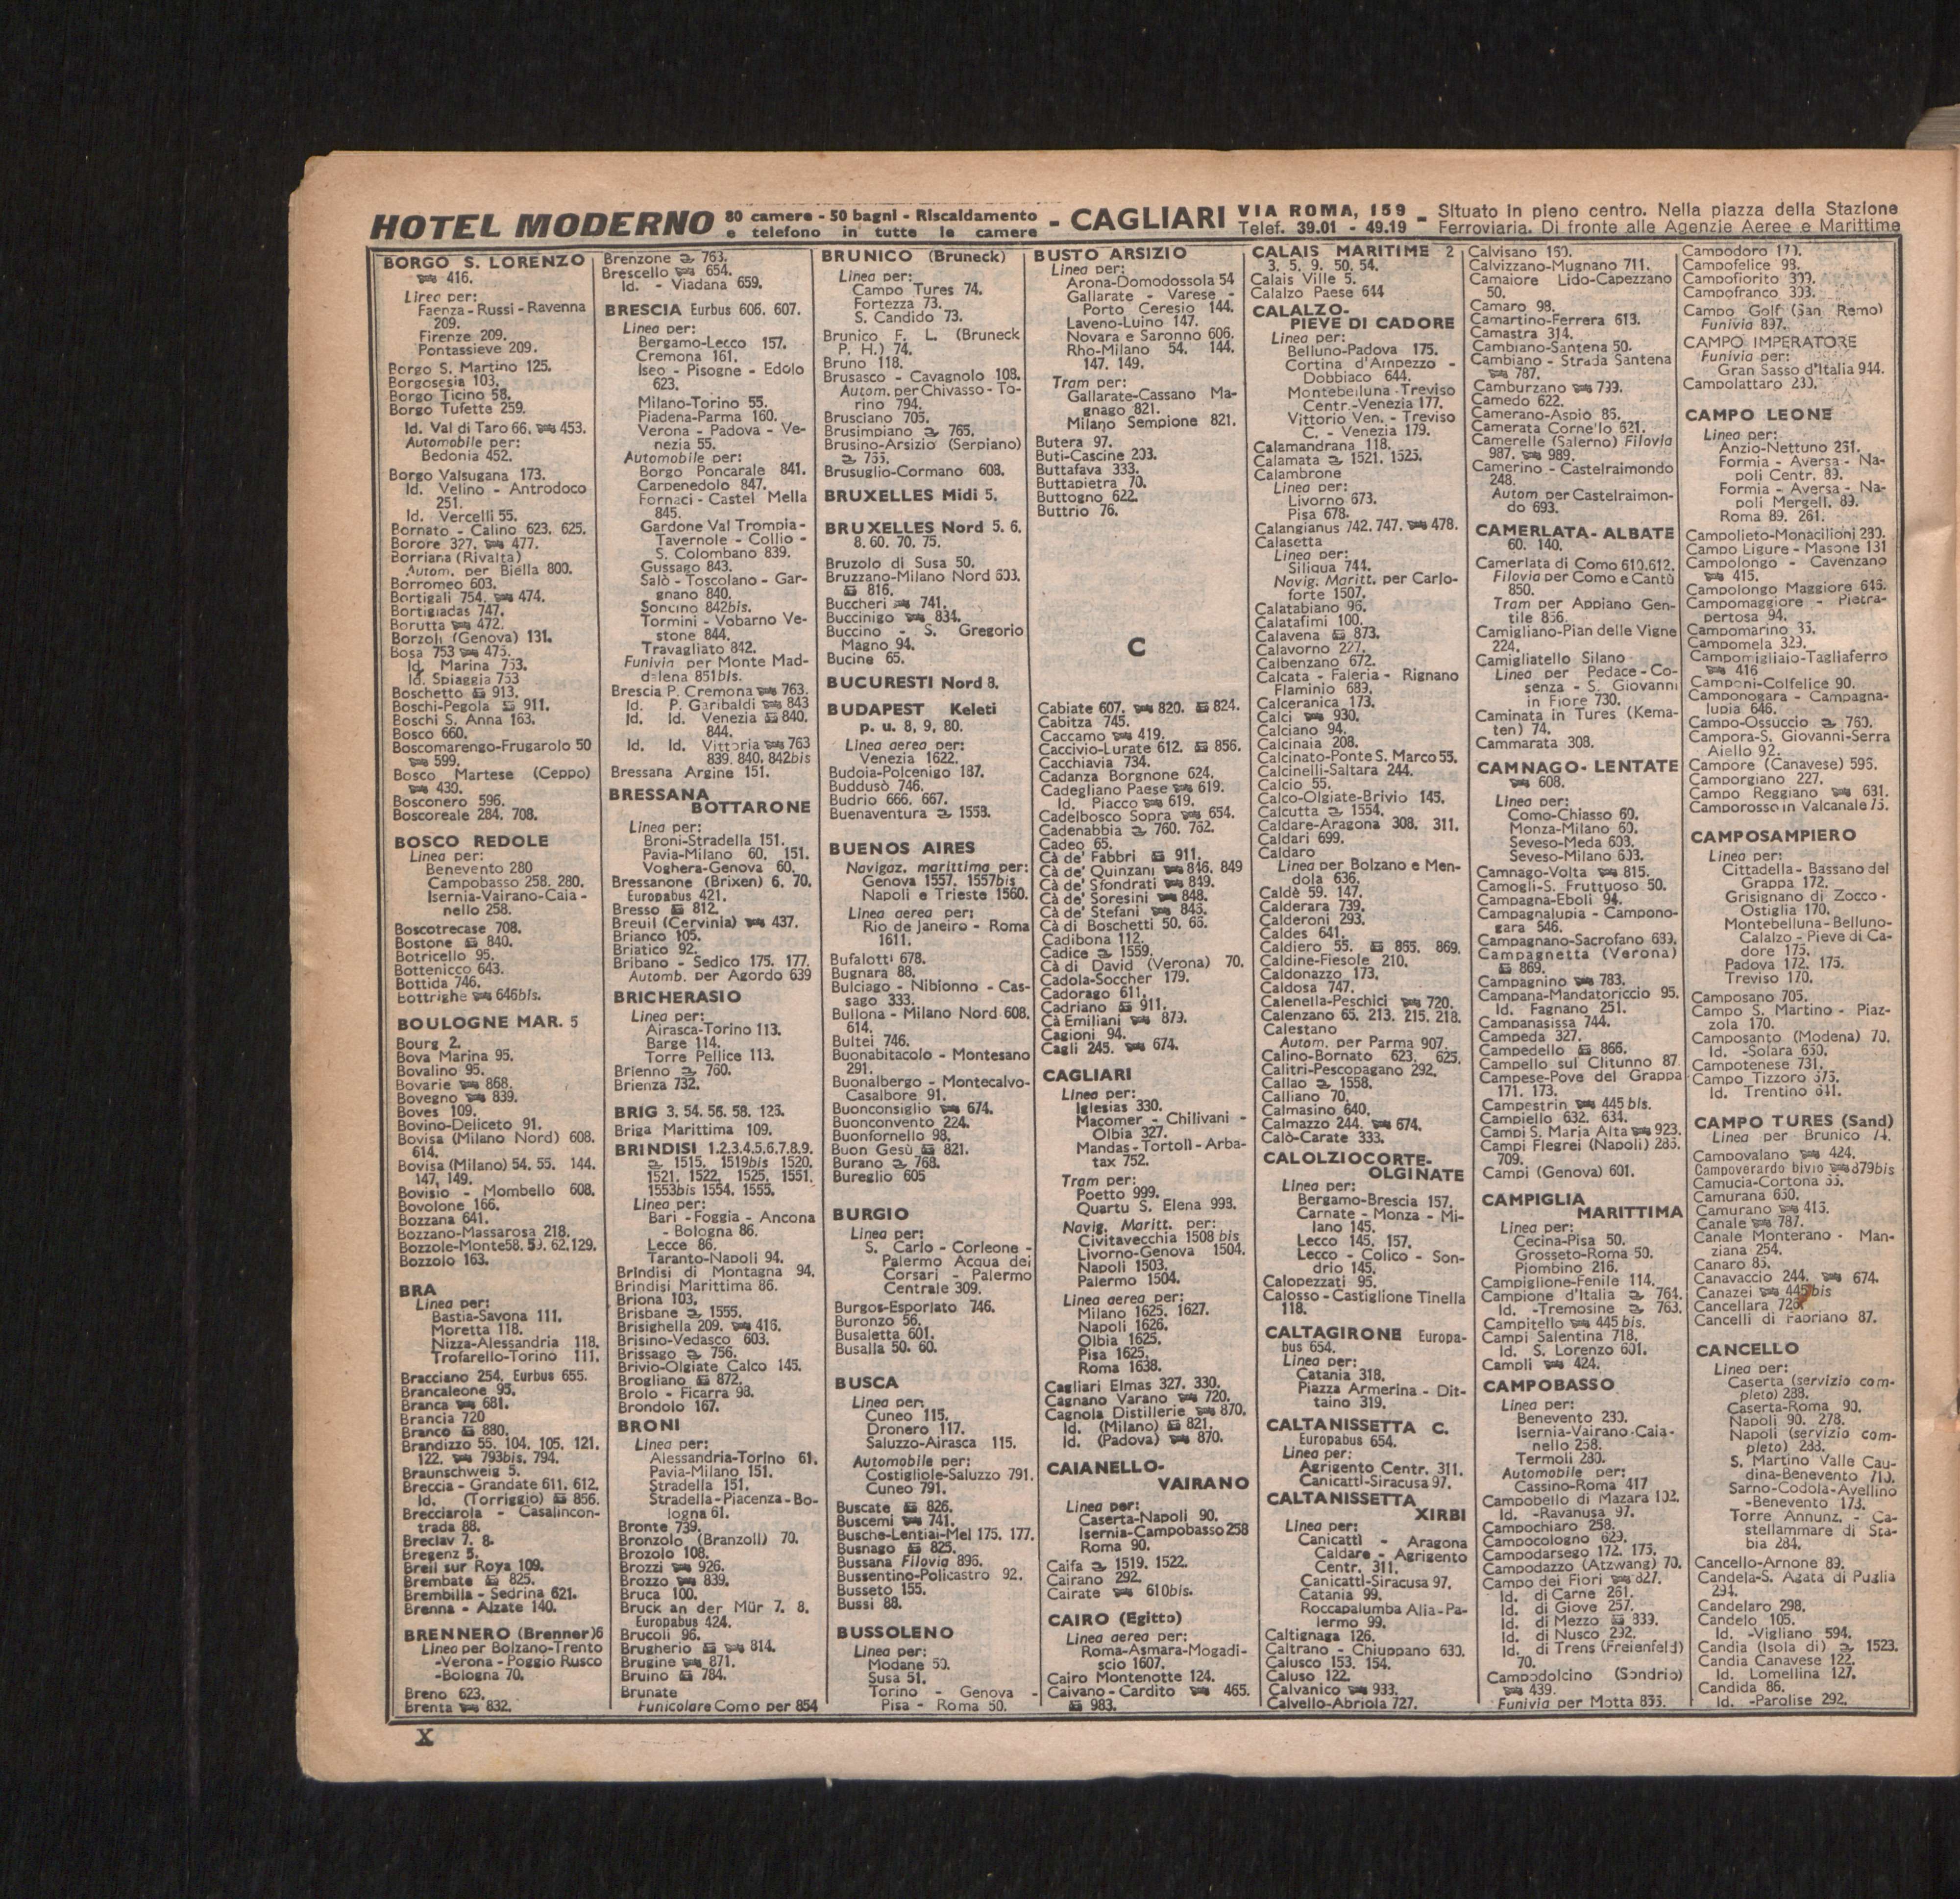 HOTEL MODERNO 80 camere - 50 bagni - Riscaldamento e telefono in tutte le camere - CAGLIARI VIA ROMA, 159 Telef. 39.01 - 49.19 - Situato in pieno centro. Nella piazza della Stazione Ferroviaria. Di fronte alle Agenzie Aeree e Marittime
BORGO S. LORENZO
416.
Linea per:
Faenza - Russi - Ravenna
209.
Firenze 209.
Pontassieve 209.
Borgo S. Martino 125.
Borgosesia 103.
Borgo Ticino 58.
Borgo Tufette 259.
Id. Val di Taro 66, 453.
Automobile per:
Bedonia 452.
Borgo Valsugana 173.
Id. Velino - Antrodoco
251.
Id. Vercelli 55.
Bornato - Calino 623. 625.
Borore 327. 477.
Borriana (Rivalta)
Autom. per Biella 800.
Borromeo 603.
Bortigali 754. 474.
Bortigiadas 747.
Borutta 472.
Borzoli (Genova) 131.
Bosa 753 475.
Id. Marina 753.
Id. Spiaggia 753
Boschetto 913.
Boschi-Pegola 911.
Boschi S. Anna 163.
Bosco 660.
Boscomarengo-Frugarolo 50
599.
Bosco Martese (Ceppo)
430.
Bosconero 596.
Boscoreale 284. 708.
BOSCO REDOLE
Linea per:
Benevento 280
Campobasso 258. 280.
Isernia-Vairano-Caia-
nello 258.
Boscotrecase 708.
Bostone 840.
Botricello 95.
Bottenicco 643.
Bottida 746.
Bottrighe 646bis.
BOULOGNE MAR. 5
Bourg 2.
Bova Marina 95.
Bovalino 95.
Bovarie 868.
Bovegno 839.
Boves 109.
Bovino-Deliceto 91.
Bovisa (Milano Nord) 608.
614.
Bovisa (Milano) 54. 55. 144.
147, 149.
Bovisio - Mombello 608.
Bovolone 166.
Bozzana 641.
Bozzano-Massarosa 218.
Bozzole-Monte 58. 59. 62. 129.
Bozzolo 163.
BRA
Linea per:
Bastia-Savona 111.
Moretta 118.
Nizza-Alessandria 118.
Trofarello-Torino 111.
Bracciano 254. Eurbus 655.
Brancaleone 95.
Branca 681.
Brancia 720
Branco 880.
Brandizzo 55. 104. 105. 121.
122. 793bis. 794.
Braunschweig 5.
Breccia - Grandate 611. 612.
Id. (Torriggio) 856.
Brecciarola - Casalincon-
trada 88.
Breclav 7. 8.
Bregenz 5.
Breil sur Roya 109.
Brembate 825.
Brembilla - Sedrina 621.
Brenna - Alzate 140.
BRENNERO (Brenner) 6
Linea per Bolzano-Trento
-Verona - Poggio Rusco
-Bologna 70.
Breno 623.
Brenta 832.
X
Brenzone 763.
Brescello 654.
Id. - Viadana 659.
BRESCIA Eurbus 606. 607.
Linea per:
Bergamo-Lecco 157.
Cremona 161.
Iseo - Pisogne - Edolo
623.
Milano-Torino 55.
Piadena-Parma 160.
Verona - Padova - Ve-
nezia 55.
Automobile per:
Borgo Poncarale 841.
Carpenedolo 847.
Fornaci - Castel Mella
845.
Gardone Val Trompia -
Tavernole - Collio -
S. Colombano 839.
Gussago 843.
Salò - Toscolano - Gar-
gnano 840.
Soncino 842bis.
Tormini - Vobarno Ve-
stone 844.
Travagliato 842.
Funivia per Monte Mad-
dalena 851bis.
Brescia P. Cremona 763.
Id. P. Garibaldi 843
Id. Id. Venezia 840.
844.
Id. Id. Vittoria 763
839. 840. 842bis
Bressana Argine 151.
BRESSANA
BOTTARONE
Linea per:
Broni-Stradella 151.
Pavia-Milano 60. 151.
Voghera-Genova 60.
Bressanone (Brixen) 6. 70.
Europabus 421.
Bresso 812.
Breuil (Cervinia) 437.
Brianco 105.
Briatico 92.
Bribano - Sedico 175. 177.
Automb. per Agordo 639
BRICHERASIO
Linea per:
Airasca-Torino 113.
Barge 114.
Torre Pellice 113.
Brienno 760.
Brienza 732.
BRIG 3. 54. 56. 58. 123.
Briga Marittima 109.
BRINDISI 1.2.3.4.5.6.7.8.9.
1515. 1519bis 1520.
1521. 1522. 1525. 1551.
1553bis 1554. 1555.
Linea per:
Bari - Foggia - Ancona
- Bologna 86.
Lecce 86.
Taranto-Napoli 94.
Brindisi di Montagna 94.
Brindisi Marittima 86.
Briona 103.
Brisbane 1555.
Brisighella 209. 416.
Brisino-Vedasco 603.
Brissago 756.
Brivio-Olgiate Calco 145.
Brogliano 872.
Brolo - Ficarra 98.
Brondolo 167.
BRONI
Linea per:
Alessandria-Torino 61.
Pavia-Milano 151.
Stradella 151.
Stradella-Piacenza-Bo-
logna 61.
Bronte 739.
Bronzolo (Branzoll) 70.
Brozolo 108.
Brozzi 926.
Brozzo 839.
Bruca 100.
Bruck an der Mür 7. 8.
Europabus 424.
Brucoli 96.
Brugherio 814.
Brugine 871.
Bruino 784.
Brunate
Funicolare Como per 854
BRUNICO (Bruneck)
Linea per:
Campo Tures 74.
Fortezza 73.
S. Candido 73.
Brunico F. L. (Bruneck
P. H.) 74.
Bruno 118.
Brusasco - Cavagnolo 108.
Autom. per Chivasso - To-
rino 794.
Brusciano 705.
Brusimpiano 765.
Brusino-Arsizio (Serpiano)
765.
Brusuglio-Cormano 608.
BRUXELLES Midi 5.
BRUXELLES Nord 5. 6.
8. 60. 70. 75.
Bruzolo di Susa 50.
Bruzzano-Milano Nord 603.
816.
Buccheri 741.
Buccinigo 834.
Buccino - S. Gregorio
Magno 94.
Bucine 65.
BUCURESTI Nord 8.
BUDAPEST Keleti
p. u. 8, 9, 80.
Linea aerea per:
Venezia 1622.
Budoia-Polcenigo 187.
Buddusò 746.
Budrio 666. 667.
Buenaventura 1558.
BUENOS AIRES
Navigaz. marittima per:
Genova 1557. 1557bis
Napoli e Trieste 1560.
Linea aerea per:
Rio de Janeiro - Roma
1611.
Bufalotti 678.
Bugnara 88.
Bulciago - Nibionno - Cas-
sago 333.
Bullona - Milano Nord 608.
614.
Bultei 746.
Buonabitacolo - Montesano
291.
Buonalbergo - Montecalvo-
Casalbore 91.
Buonconsiglio 674.
Buonconvento 224.
Buonfornello 98.
Buon Gesù 821.
Burano 768.
Bureglio 605
BURGIO
Linea per:
S. Carlo - Corleone -
Palermo Acqua dei
Corsari - Palermo
Centrale 309.
Burgos-Esporlato 746.
Buronzo 56.
Busaletta 601.
Busalla 50. 60.
BUSCA
Linea per:
Cuneo 115.
Dronero 117.
Saluzzo-Airasca 115.
Automobile per:
Costigliole-Saluzzo 791.
Cuneo 791.
Buscate 826.
Buscemi 741.
Busche-Lentiai-Mel 175. 177.
Busnago 825.
Bussana Filovia 896.
Bussentino-Policastro 92.
Busseto 155.
Bussi 88.
BUSSOLENO
Linea per:
Modane 50.
Susa 51.
Torino - Genova -
Pisa - Roma 50.
BUSTO ARSIZIO
Linea per:
Arona-Domodossola 54
Gallarate - Varese -
Porto Ceresio 144.
Laveno-Luino 147.
Novara e Saronno 606.
Rho-Milano 54. 144.
147. 149.
Tram per:
Gallarate-Cassano Ma-
gnago 821.
Milano Sempione 821.
Butera 97.
Buti-Cascine 203.
Buttafava 333.
Buttapietra 70.
Buttogno 622.
Buttrio 76.
C
Cabiate 607. 820. 824.
Cabitza 745.
Caccamo 419.
Caccivio-Lurate 612. 856.
Cacchiavia 734.
Cadanza Borgnone 624.
Cadegliano Paese 619.
Id. Piacco 619.
Cadelbosco Sopra 654.
Cadenabbia 760. 762.
Cadeo 65.
Cà de' Fabbri 911.
Cà de' Quinzani 846. 849
Cà de' Sfondrati 849.
Cà de' Soresini 848.
Cà de' Stefani 845.
Cà di Boschetti 50. 65.
Cadibona 112.
Cadice 1559.
Cà di David (Verona) 70.
Cadola-Soccher 179.
Cadorago 611.
Cadriano 911.
Cà Emiliani 879.
Cagioni 94.
Cagli 245. 674.
CAGLIARI
Linea per:
Iglesias 330.
Macomer - Chilivani -
Olbia 327.
Mandas-Tortolì-Arba-
tax 752.
Tram per:
Poetto 999.
Quartu S. Elena 998.
Navig. Maritt. per:
Civitavecchia 1508 bis
Livorno-Genova 1504.
Napoli 1503.
Palermo 1504.
Linea aerea per:
Milano 1625. 1627.
Napoli 1626.
Olbia 1625.
Pisa 1625.
Roma 1638.
Cagliari Elmas 327. 330.
Cagnano Varano 720.
Cagnola Distillerie 870.
Id. (Milano) 821.
Id. (Padova) 870.
CAIANELLO-
VAIRANO
Linea per:
Caserta-Napoli 90.
Isernia-Campobasso 258
Roma 90.
Caifa 1519. 1522.
Cairano 292.
Cairate 610bis.
CAIRO (Egitto)
Linea aerea per:
Roma-Asmara-Mogadi-
scio 1607.
Cairo Montenotte 124.
Caivano - Cardito 465.
983.
CALAIS MARITIME 2
3. 5. 9. 50. 54.
Calais Ville 5.
Calalzo Paese 644
CALALZO-
PIEVE DI CADORE
Linea per:
Belluno-Padova 175.
Cortina d'Ampezzo -
Dobbiaco 644.
Montebelluna-Treviso
Centr.-Venezia 177.
Vittorio Ven. - Treviso
C. - Venezia 179.
Calamandrana 118.
Calamata 1521. 1525.
Calambrone
Linea per:
Livorno 673.
Pisa 678.
Calangianus 742. 747. 478.
Calasetta
Linea per:
Siliqua 744.
Navig. Maritt. per Carlo-
forte 1507.
Calatabiano 96.
Calatafimi 100.
Calavena 873.
Calavorno 227.
Calbenzano 672.
Calcata - Faleria - Rignano
Flaminio 689.
Calceranica 173.
Calci 930.
Calciano 94.
Calcinaia 208.
Calcinato-Ponte S. Marco 55.
Calcinelli-Saltara 244.
Calcio 55.
Calco-Olgiate-Brivio 145.
Calcutta 1554.
Caldare-Aragona 308. 311.
Caldari 699.
Caldaro
Linea per Bolzano e Men-
dola 636.
Caldè 59. 147.
Calderara 739.
Calderoni 293.
Caldes 641.
Caldiero 55. 865. 869.
Caldine-Fiesole 210.
Caldonazzo 173.
Caldosa 747.
Calenella-Peschici 720.
Calenzano 65. 213. 215. 218.
Calestano
Autom. per Parma 907.
Calino-Bornato 623. 625.
Calitri-Pescopagano 292.
Callao 1558.
Calliano 70.
Calmasino 640.
Calmazzo 244. 674.
Calò-Carate 333.
CALOLZIOCORTE-
OLGINATE
Linea per:
Bergamo-Brescia 157.
Carnate - Monza - Mi-
lano 145.
Lecco 145. 157.
Lecco - Colico - Son-
drio 145.
Calopezzati 95.
Calosso - Castiglione Tinella
118.
CALTAGIRONE Europa-
bus 654.
Linea per:
Catania 318.
Piazza Armerina - Dit-
taino 319.
CALTANISSETTA C.
Europabus 654.
Linea per:
Agrigento Centr. 311.
Canicattì-Siracusa 97.
CALTANISSETTA
XIRBI
Linea per:
Canicattì - Aragona
Caldare - Agrigento
Centr. 311.
Canicattì-Siracusa 97.
Catania 99.
Roccapalumba Alia-Pa-
lermo 99.
Caltignaga 126.
Caltrano - Chiuppano 630.
Calusco 153. 154.
Caluso 122.
Calvanico 933.
Calvello-Abriola 727.
Calvisano 160.
Calvizzano-Mugnano 711.
Camaiore Lido-Capezzano
50.
Camaro 98.
Camartino-Ferrera 613.
Camastra 314.
Cambiano-Santena 50.
Cambiano - Strada Santena
787.
Camburzano 799.
Camedo 622.
Camerano-Aspio 85.
Camerata Cornello 621.
Camerelle (Salerno) Filovia
987. 989.
Camerino - Castelraimondo
248.
Autom per Castelraimon-
do 693.
CAMERLATA- ALBATE
60. 140.
Camerlata di Como 610.612.
Filovia per Como e Cantù
850.
Tram per Appiano Gen-
tile 856.
Camigliano-Pian delle Vigne
224.
Camigliatello Silano
Linea per Pedace-Co-
senza - S. Giovanni
in Fiore 730.
Caminata in Tures (Kema-
ten) 74.
Cammarata 308.
CAMNAGO- LENTATE
608.
Linea per:
Como-Chiasso 60.
Monza-Milano 60.
Seveso-Meda 603.
Seveso-Milano 603.
Camnago-Volta 815.
Camogli-S. Fruttuoso 50.
Campagna-Eboli 94.
Campagnalupia - Campono-
gara 546.
Campagnano-Sacrofano 689.
Campagnetta (Verona)
869.
Campagnino 783.
Campana-Mandatoriccio 95.
Id. Fagnano 251.
Campanasissa 744.
Campeda 327.
Campedello 866.
Campello sul Clitunno 87.
Campese-Pove del Grappa
171. 173.
Campestrin 445 bis.
Campiello 632. 634.
Campi S. Maria Alta 923.
Campi Flegrei (Napoli) 285.
709.
Campi (Genova) 601.
CAMPIGLIA
MARITTIMA
Linea per:
Cecina-Pisa 50.
Grosseto-Roma 50.
Piombino 216.
Campiglione-Fenile 114.
Campione d'Italia 764.
Id. -Tremosine 763.
Campitello 445 bis.
Campi Salentina 718.
Id. S. Lorenzo 601.
Campli 424.
CAMPOBASSO
Linea per:
Benevento 230.
Isernia-Vairano-Caia-
nello 258.
Termoli 280.
Automobile per:
Cassino-Roma 417
Campobello di Mazara 102.
Id. -Ravanusa 97.
Campochiaro 258.
Campocologno 629.
Campodarsego 172. 175.
Campodazzo (Atzwang) 70.
Campo dei Fiori 827.
Id. di Carne 261.
Id. di Giove 257.
Id. di Mezzo 839.
Id. di Nusco 292.
Id. di Trens (Freienfeld)
70.
Campodolcino (Sondrio)
439.
Funivia per Motta 835.
Campodoro 170.
Campofelice 98.
Campofiorito 309.
Campofranco 303.
Campo Golf (San Remo)
Funivia 897.
CAMPO IMPERATORE
Funivia per:
Gran Sasso d'Italia 944.
Campolattaro 230.
CAMPO LEONE
Linea per:
Anzio-Nettuno 261.
Formia - Aversa - Na-
poli Centr. 89.
Formia - Aversa - Na-
poli Mergell. 89.
Roma 89. 261.
Campolieto-Monacilioni 280.
Campo Ligure - Masone 131
Campolongo - Cavenzano
415.
Campolongo Maggiore 646.
Campomaggiore - Pietra-
pertosa 94.
Campomarino
Campomela 329.
Campomigliaio-Tagliaferro
416
Camponi-Colfelice 90.
Camponogara - Campagna-
lupia 646.
Campo-Ossuccio 760.
Campora-S. Giovanni-Serra
Aiello 92.
Campore (Canavese) 596.
Camporgiano 227.
Campo Reggiano 681.
Camporosso in Valcanale 75.
CAMPOSAMPIERO
Linea per:
Cittadella - Bassano del
Grappa 172.
Grisignano di Zocco -
Ostiglia 170.
Montebelluna-Belluno-
Calalzo - Pieve di Ca-
dore 175.
Padova 172. 175.
Treviso 170.
Camposano 705.
Campo S. Martino - Piaz-
zola 170.
Camposanto (Modena) 70.
Id. -Solara 650.
Campotenese 731.
Campo Tizzoro 575.
Id. Trentino 641.
CAMPO TURES (Sand)
Linea per Brunico 74.
Campovalano 424.
Campoverardo bivio 879bis
Camucia-Cortona 65.
Camurana 650.
Camurano 415.
Canale 787.
Canale Monterano - Man-
ziana 254.
Canaro 85.
Canavaccio 244. 674.
Canazei 445bis
Cancellara
Cancelli di Fabriano 87.
CANCELLO
Linea per:
Caserta (servizio com-
pleto) 288.
Caserta-Roma 90.
Napoli 90. 278.
Napoli (servizio com-
pleto) 288.
S. Martino Valle Cau-
dina-Benevento 710.
Sarno-Codola-Avellino
-Benevento 173.
Torre Annunz. - Ca-
stellammare di Sta-
bia 284.
Cancello-Arnone 89.
Candela-S. Agata di Puglia
294.
Candelaro 298.
Candelo 105.
Id. -Vigliano 594.
Candia (Isola di) 1523.
Candia Canavese 122.
Id. Lomellina 127.
Candida 86.
Id. -Parolise 292.